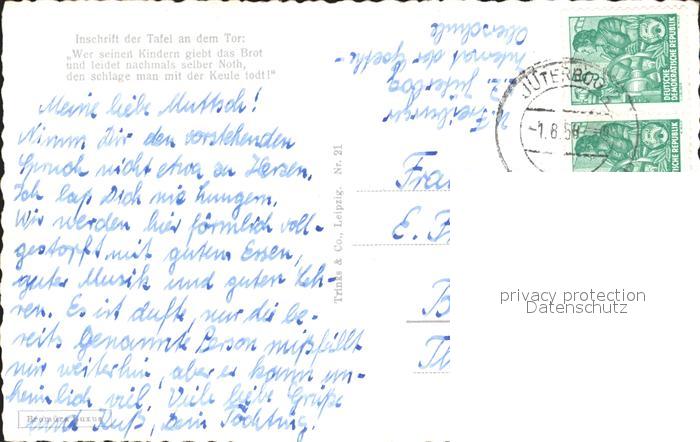 Inschrift der Tafel an dem Tor:
„Wer seinen Kindern giebt das Brot
und leidet nachmals selber Noth,
den schlage man mit der Keule todt!"
Meine liebe Muttsch!
Nimm Dir den vorstehenden
Spruch nicht etwa zu Herzen.
Ich laß Dich nie hungern.
Wir werden hier förmlich voll-
gestopft mit gutem Essen,
guter Musik und guten Leh-
ren. Es ist dufte, nur die be-
reits genannte Person mißfällt
mir weiterhin, aber er kann un-
heimlich viel. Viele liebe Grüße
und Kuß, Dein Töchting.
Trinks & Co., Leipzig. Nr. 21
Freiburger
z. Z. Jüterbog
Internat der Goethe-
Oberschule
JÜTERBOG
-1.8.59
DEUTSCHE
DEMOKRATISCHE REPUBLIK
Fra
E. F
B
Th
privacy protection
Datenschutz